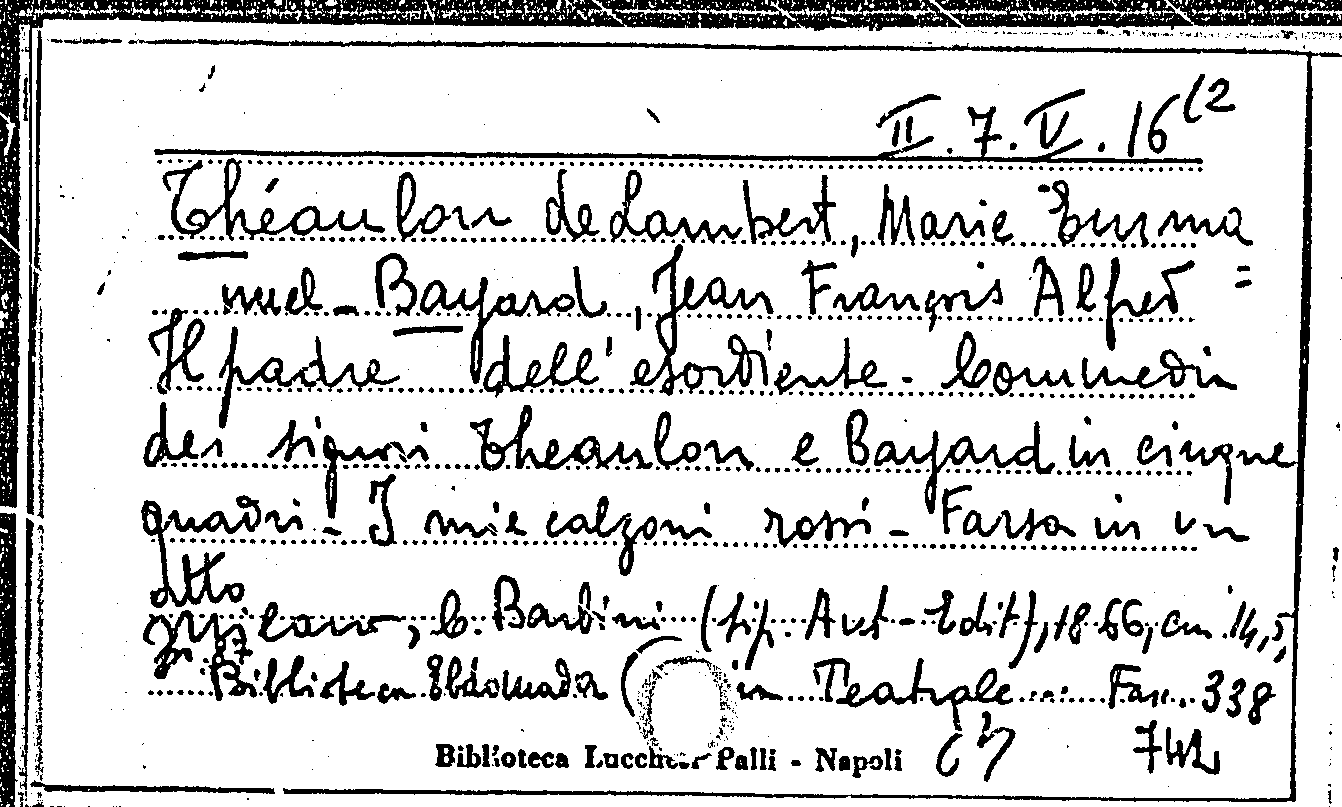 II. 7. V. 16 (2
Théaulon de Lambert, Marie Emma
nuel - Bayard, Jean François Alfred =
Il padre dell'esordiente - Commedia
dei signori Theaulon e Bayard in cinque
quadri - I miei calzoni rossi - Farsa in un
atto
Milano, C. Barbini (tip. Aut-Edit), 1866, cm. 14,5,
Biblioteca Ebdomada ( in Teatrale Fasc. 338
742
Biblioteca Lucchesi Palli - Napoli